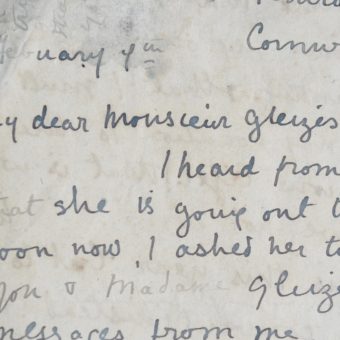 Cornw
ebruary 4th
y dear Monsieur Gleizes
I heard from
that she is going out t
oon now, I asked her to
you & Madame Gleize
messages from me